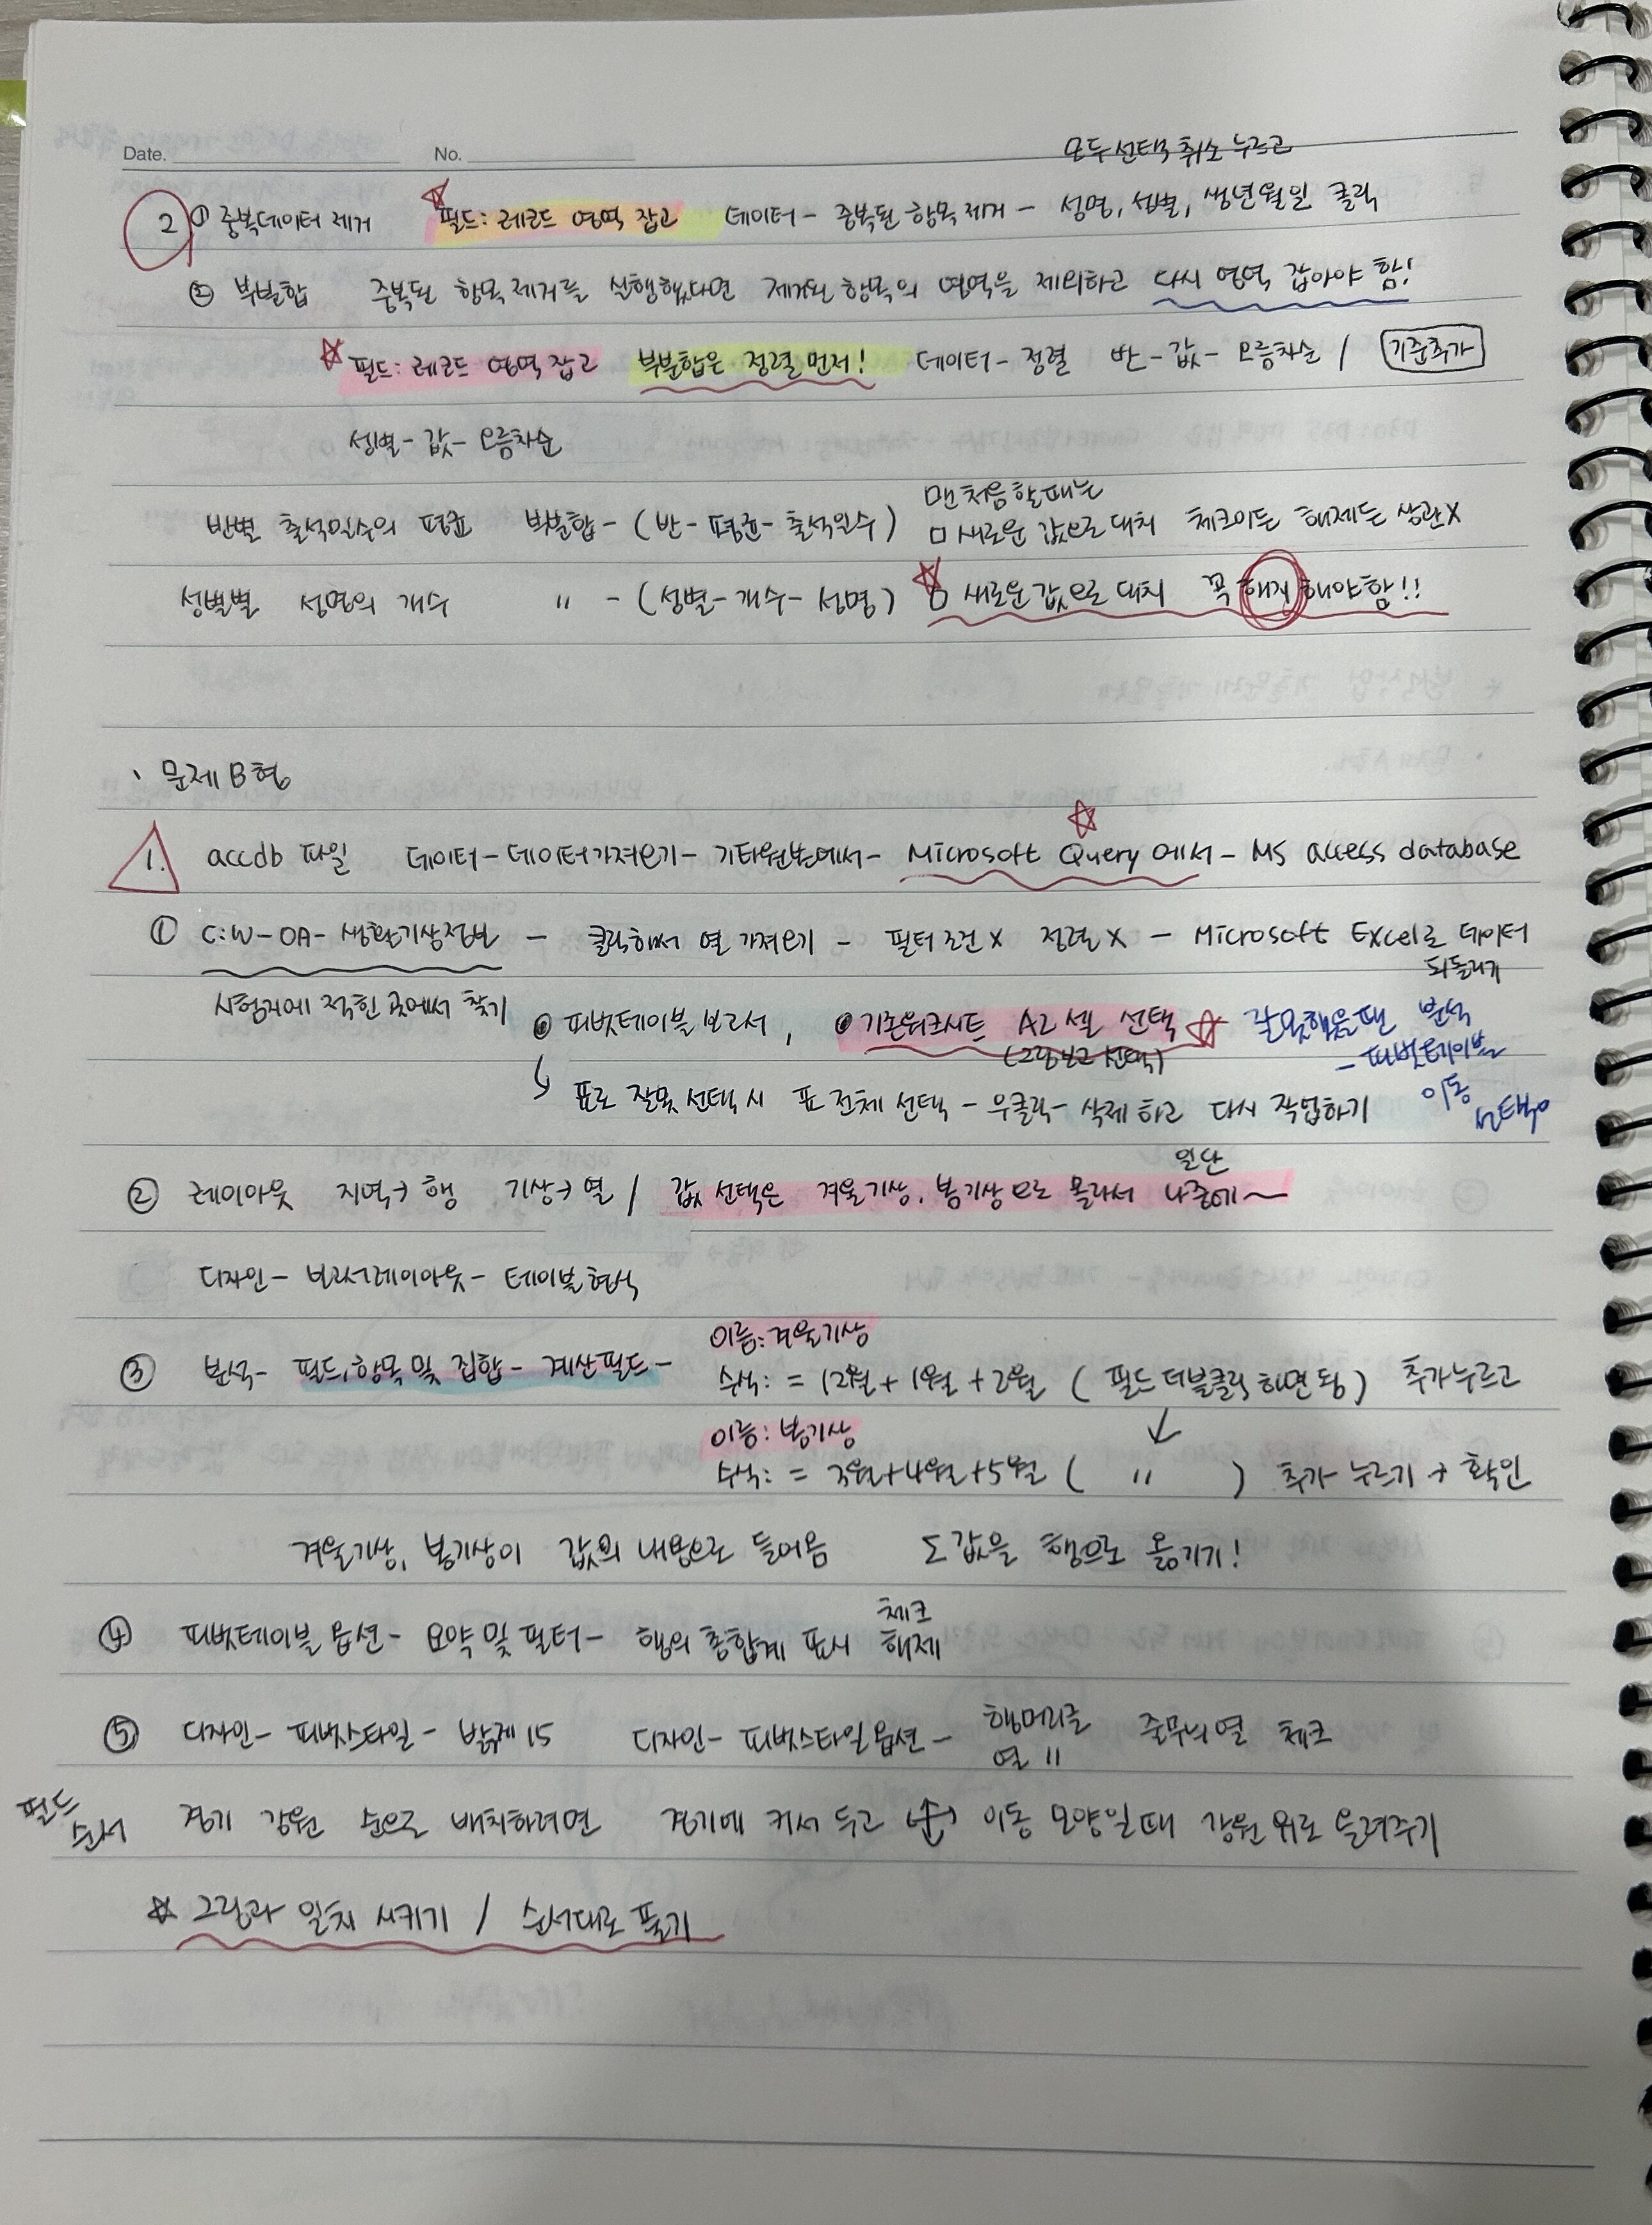 Date. No. 모두 선택 취소 누르고
2 ① 중복데이터 제거 ☆필드: 레코드 영역 잡고 데이터 - 중복된 항목 제거 - 성명, 성별, 생년월일 클릭
② 부분합 중복된 항목 제거를 실행했다면 제거된 항목의 영역을 제외하고 다시 영역 잡아야 함!
☆ 필드: 레코드 영역 잡고 부분합은 정렬 먼저! 데이터 - 정렬 반 - 값 - 오름차순 / 기준추가
성별 - 값 - 오름차순
맨 처음할때는
반별 출석일수의 평균 부분합 - (반 - 평균 - 출석일수) □ 새로운 값으로 대치 체크이든 해제든 상관X
성별별 성명의 개수 〃 - (성별 - 개수 - 성명) ☆ □ 새로운 값으로 대치 꼭 해제 해야함!!
· 문제 B형
1. accdb 파일 데이터 - 데이터 가져오기 - 기타원본에서 - ☆ Microsoft Query에서 - MS access database
① C:₩ - OA - 생활기상정보 - 클릭해서 열 가져오기 - 필터조건 X 정렬 X - Microsoft Excel로 데이터
되돌리기
시험지에 적힌 곳에서 찾기
◉ 피벗테이블 보고서, ◉ 기존워크시트 A2 셀 선택 ☆ 잘못했을땐 분석
(그림보고 선택) - 피벗테이블
이동 선택
↳ 표로 잘못 선택시 표 전체 선택 - 우클릭 - 삭제하고 다시 작업하기
② 레이아웃 지역→행 기상→열 / 값 선택은 겨울기상, 봄기상으로 몰라서 일단 나중에~
디자인 - 보고서레이아웃 - 테이블형식
이름: 겨울기상
③ 분석 - 필드, 항목 및 집합 - 계산 필드 - 수식: = 12월 + 1월 + 2월 ( 필드 더블클릭 하면 됨 ) 추가 누르고
이름: 봄기상 ↓
수식: = 3월 + 4월 + 5월 ( 〃 ) 추가 누르기 → 확인
겨울기상, 봄기상이 값의 내용으로 들어옴 Σ 값을 행으로 옮기기!
④ 피벗테이블 옵션 - 요약 및 필터 - 행의 총합계 표시 체크 해제
⑤ 디자인 - 피벗스타일 - 밝게 15 디자인 - 피벗스타일 옵션 - 행머리글 줄무늬 열 체크
열 〃
필드 순서 경기 강원 순으로 배치하려면 경기에 커서 두고 이동 모양일때 강원 위로 올려주기
☆ 그림과 일치 시키기 / 순서대로 풀기